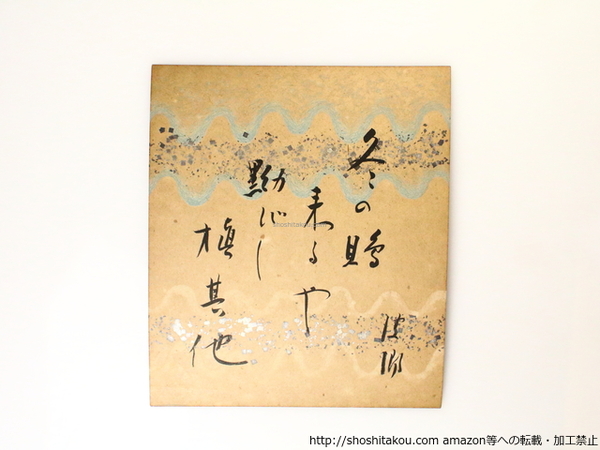 冬の鵙
来るや
黝し
槙其他
波郷
shoshitakou.com
http://shoshitakou.com amazon等への転載・加工禁止